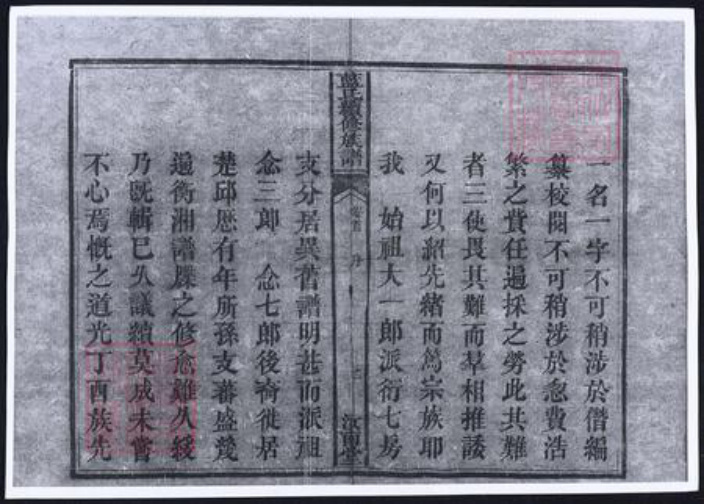 一名一字不可稍涉於僭編
纂校閱不可稍涉於忽費浩
繁之費任遍採之勞此其難
者三使畏其難而羣相推諉
又何以紹先緒而篤宗族耶
我 始祖大一郎派衍七房
藍氏續修族譜
卷首
汝南堂
支分居異舊譜明甚而派祖
念三郎 念七郎後裔徙居
楚邱歷有年所孫支蕃盛幾
遍衡湘譜牒之修愈難久緩
乃旣輯已久議續莫成未嘗
不心焉慨之道光丁酉族先